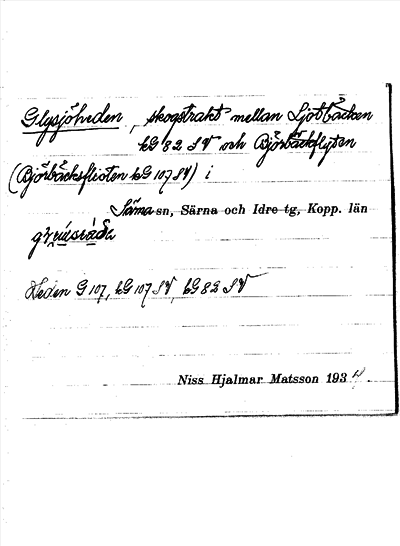 Glysjöheden, skogstrakt mellan Ljotbäcken
kG 82 SV och Björbäckflyten
(Björbäcksfloten kG 107 SV) i
Särna sn, Särna och Idre tg, Kopp. län
Heden G 107, kG 107 SV, kG 82 SV
Niss Hjalmar Matsson 193